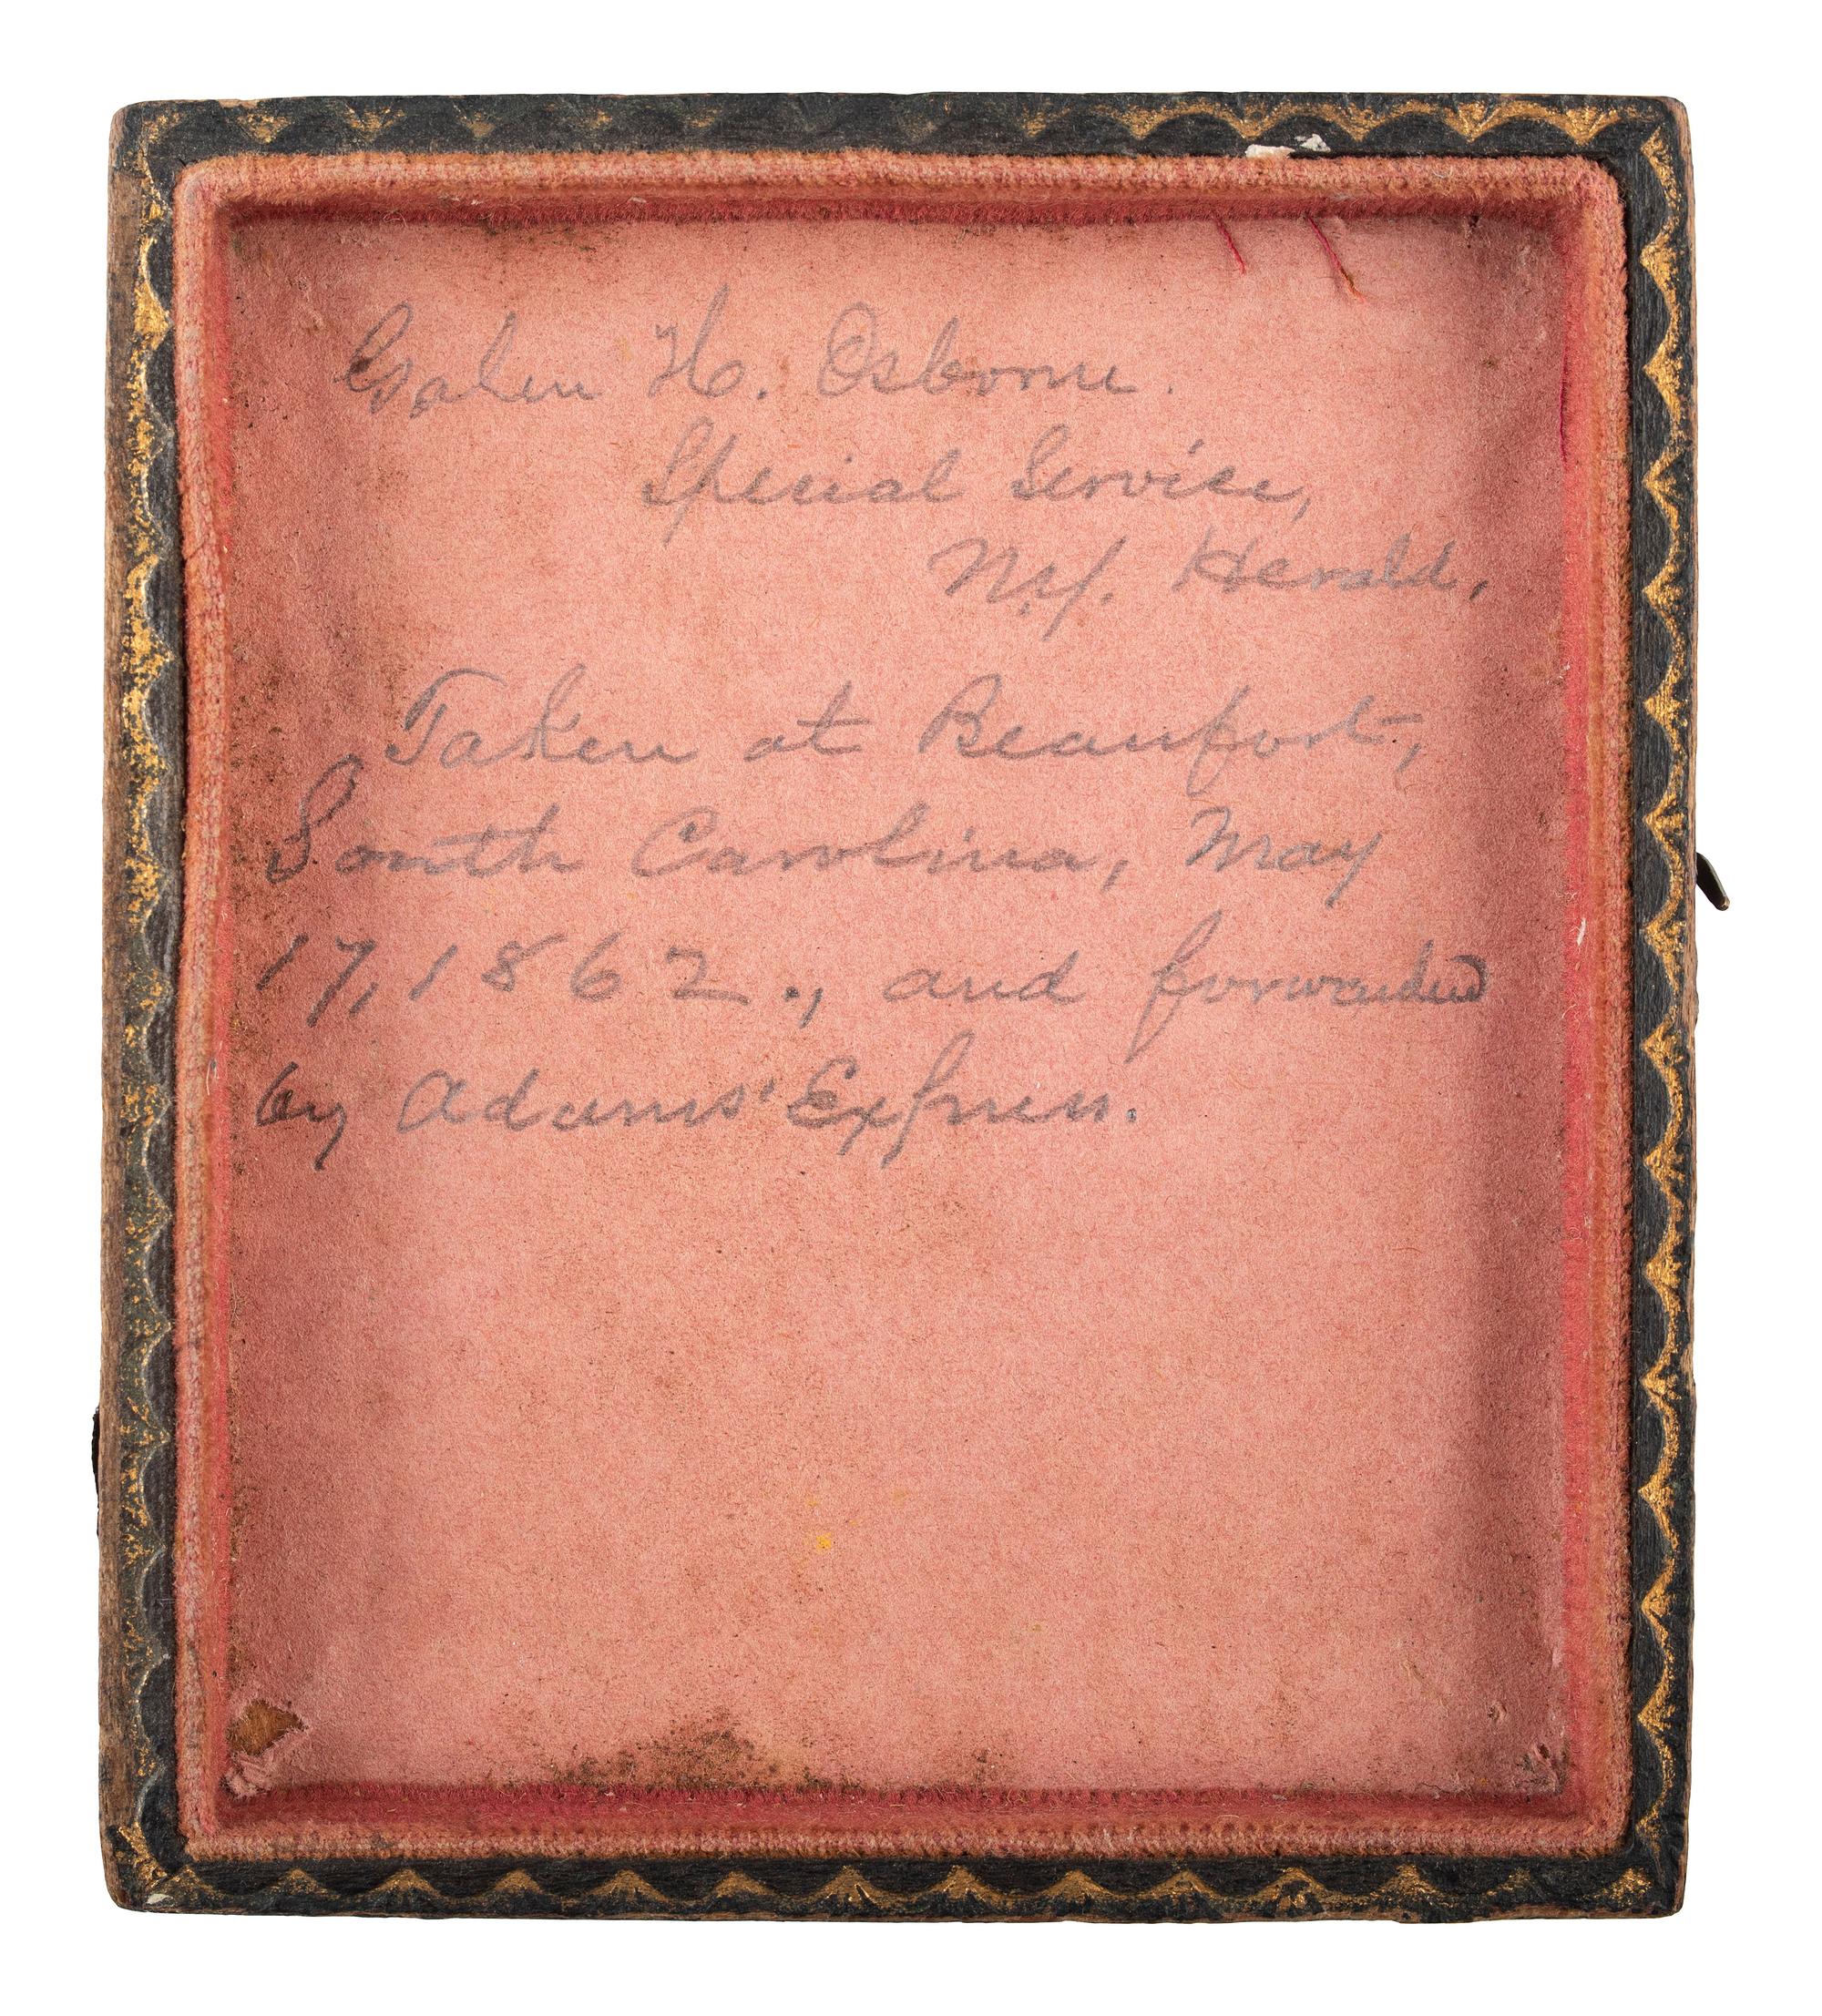 Galen H. Osborne.
Special Service,
N.Y. Herald.
Taken at Beaufort,
South Carolina, May
17, 1862., and forwarded
by Adams' Express.